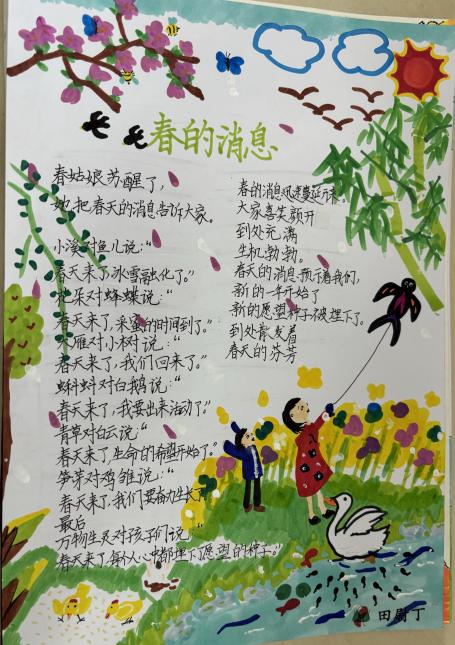 春的消息
春姑娘苏醒了，
她把春天的消息告诉大家。
小溪对鱼儿说：“
春天来了，冰雪融化了。”
花朵对蜂蝶说：“
春天来了，采蜜的时间到了。”
大雁对小树说：“
春天来了，我们回来了。”
蝌蚪对白鹅说：“
春天来了，我要出来活动了。”
青草对白云说：“
春天来了，生命的希望开始了。”
笋芽对鸡雏说：“
春天来了，我们要奋力生长了
最后
万物生灵对孩子们说：“
春天来了，每个人心中都埋下了愿望的种子。”
春的消息迅速蔓延开来。
大家喜笑颜开
到处充满
生机勃勃。
春天的消息预示着我们，
新的一年开始了
新的愿望种子被埋下了。
到处散发着
春天的芬芳
田尉丁